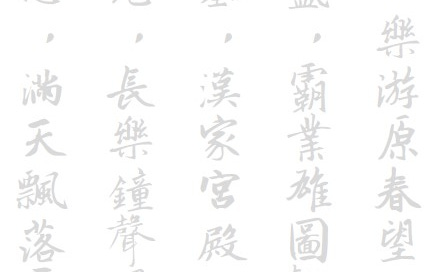 樂游原春望
，霸業雄圖
，漢家宮殿
，長樂鐘聲
，滿天飄落